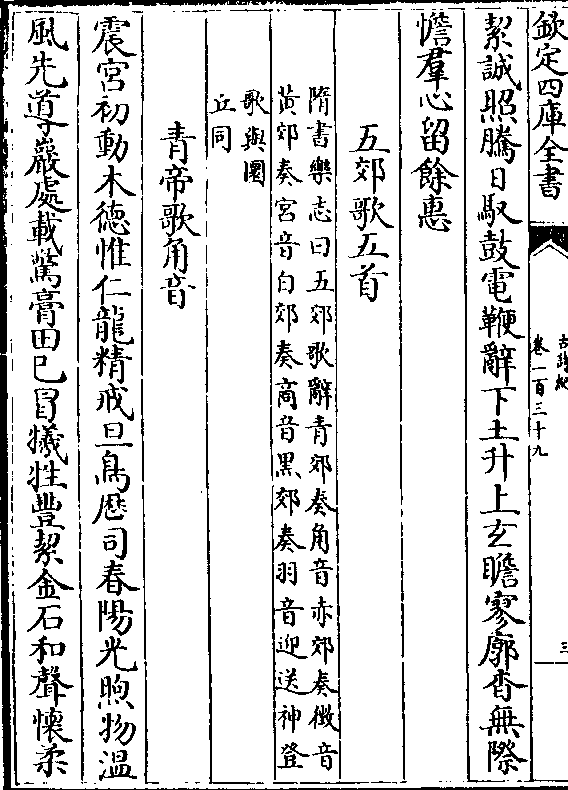 欽定四庫全書
古詩紀
卷一百三十九
三
絜誠照騰日馭鼓電鞭辭下土升上玄瞻寥廓杳無際
憺羣心留餘惠
五郊歌五首
隋書樂志曰五郊歌辭青郊奏角音赤郊奏徵音
黄郊奏宮音白郊奏商音黒郊奏羽音迎送神登
歌與圜
丘同
青帝歌角音
震宮初動木德惟仁龍精戒旦鳥歴司春陽光煦物温
風先導巖處載驚膏田已冒犧牲豐絜金石和聲懷柔